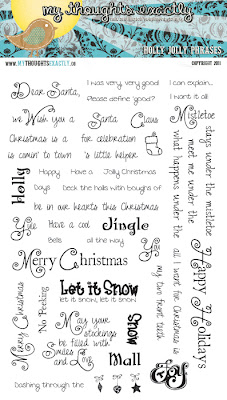 my thoughts exactly
HOLLY JOLLY PHRASES
WWW.MYTHOUGHTSEXACTLY.US
COPYRIGHT 2011
Dear Santa,
I was very very good!
I can explain...
Please define 'good'?
I want it all
We Wish you a
Santa Claus
Mistletoe
Christmas is a
for celebration
is comin' to town
's little helper
Holly
Happy
Have a
Jolly Christmas
Days
Deck the halls with boughs of
be in our hearts this Christmas
Yule
Have a cool
Jingle
You
Bells
all the way
Merry Christmas
Yay
Let it Snow
let it snow, let it snow
Merry Christmas
No Peeking
May your
stockings
be filled with
Smiles
and Love
Snow
Mall
Joy
Dashing through the
stays under the mistletoe
meet me under the
what happens under the
all I want for Christmas is
my two front teeth
Happy Holidays